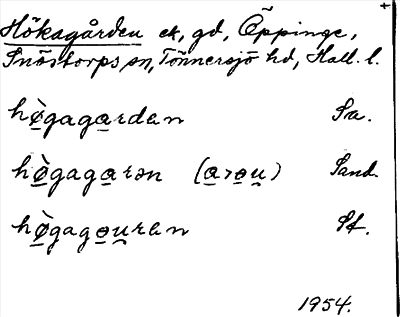 Hökagården ek, gd, Öppinge,
Snöstorps sn, Tönnersjö hd, Hall. l.
hø̠̀gaga̠rdən Sa.
hø̠̀gaga̠rən (a̠>ɵ̠u̠) Sand.
hø̠̀gagɵ̠u̠rən St.
1954.